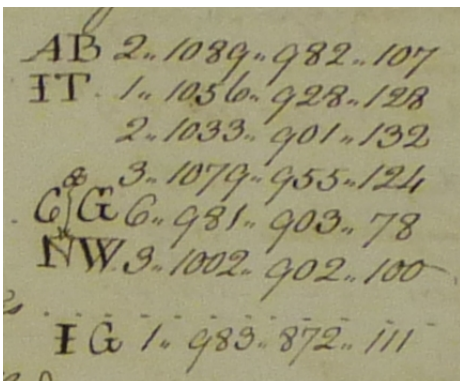 AB 2.. 1089.. 982.. 107
IT. 1.. 1056.. 928.. 128
2.. 1033.. 901.. 132
3.. 1079.. 955.. 124
G G 6.. 981.. 903.. 78
NW. 3.. 1002.. 902.. 100
IG 1.. 983.. 872.. 111